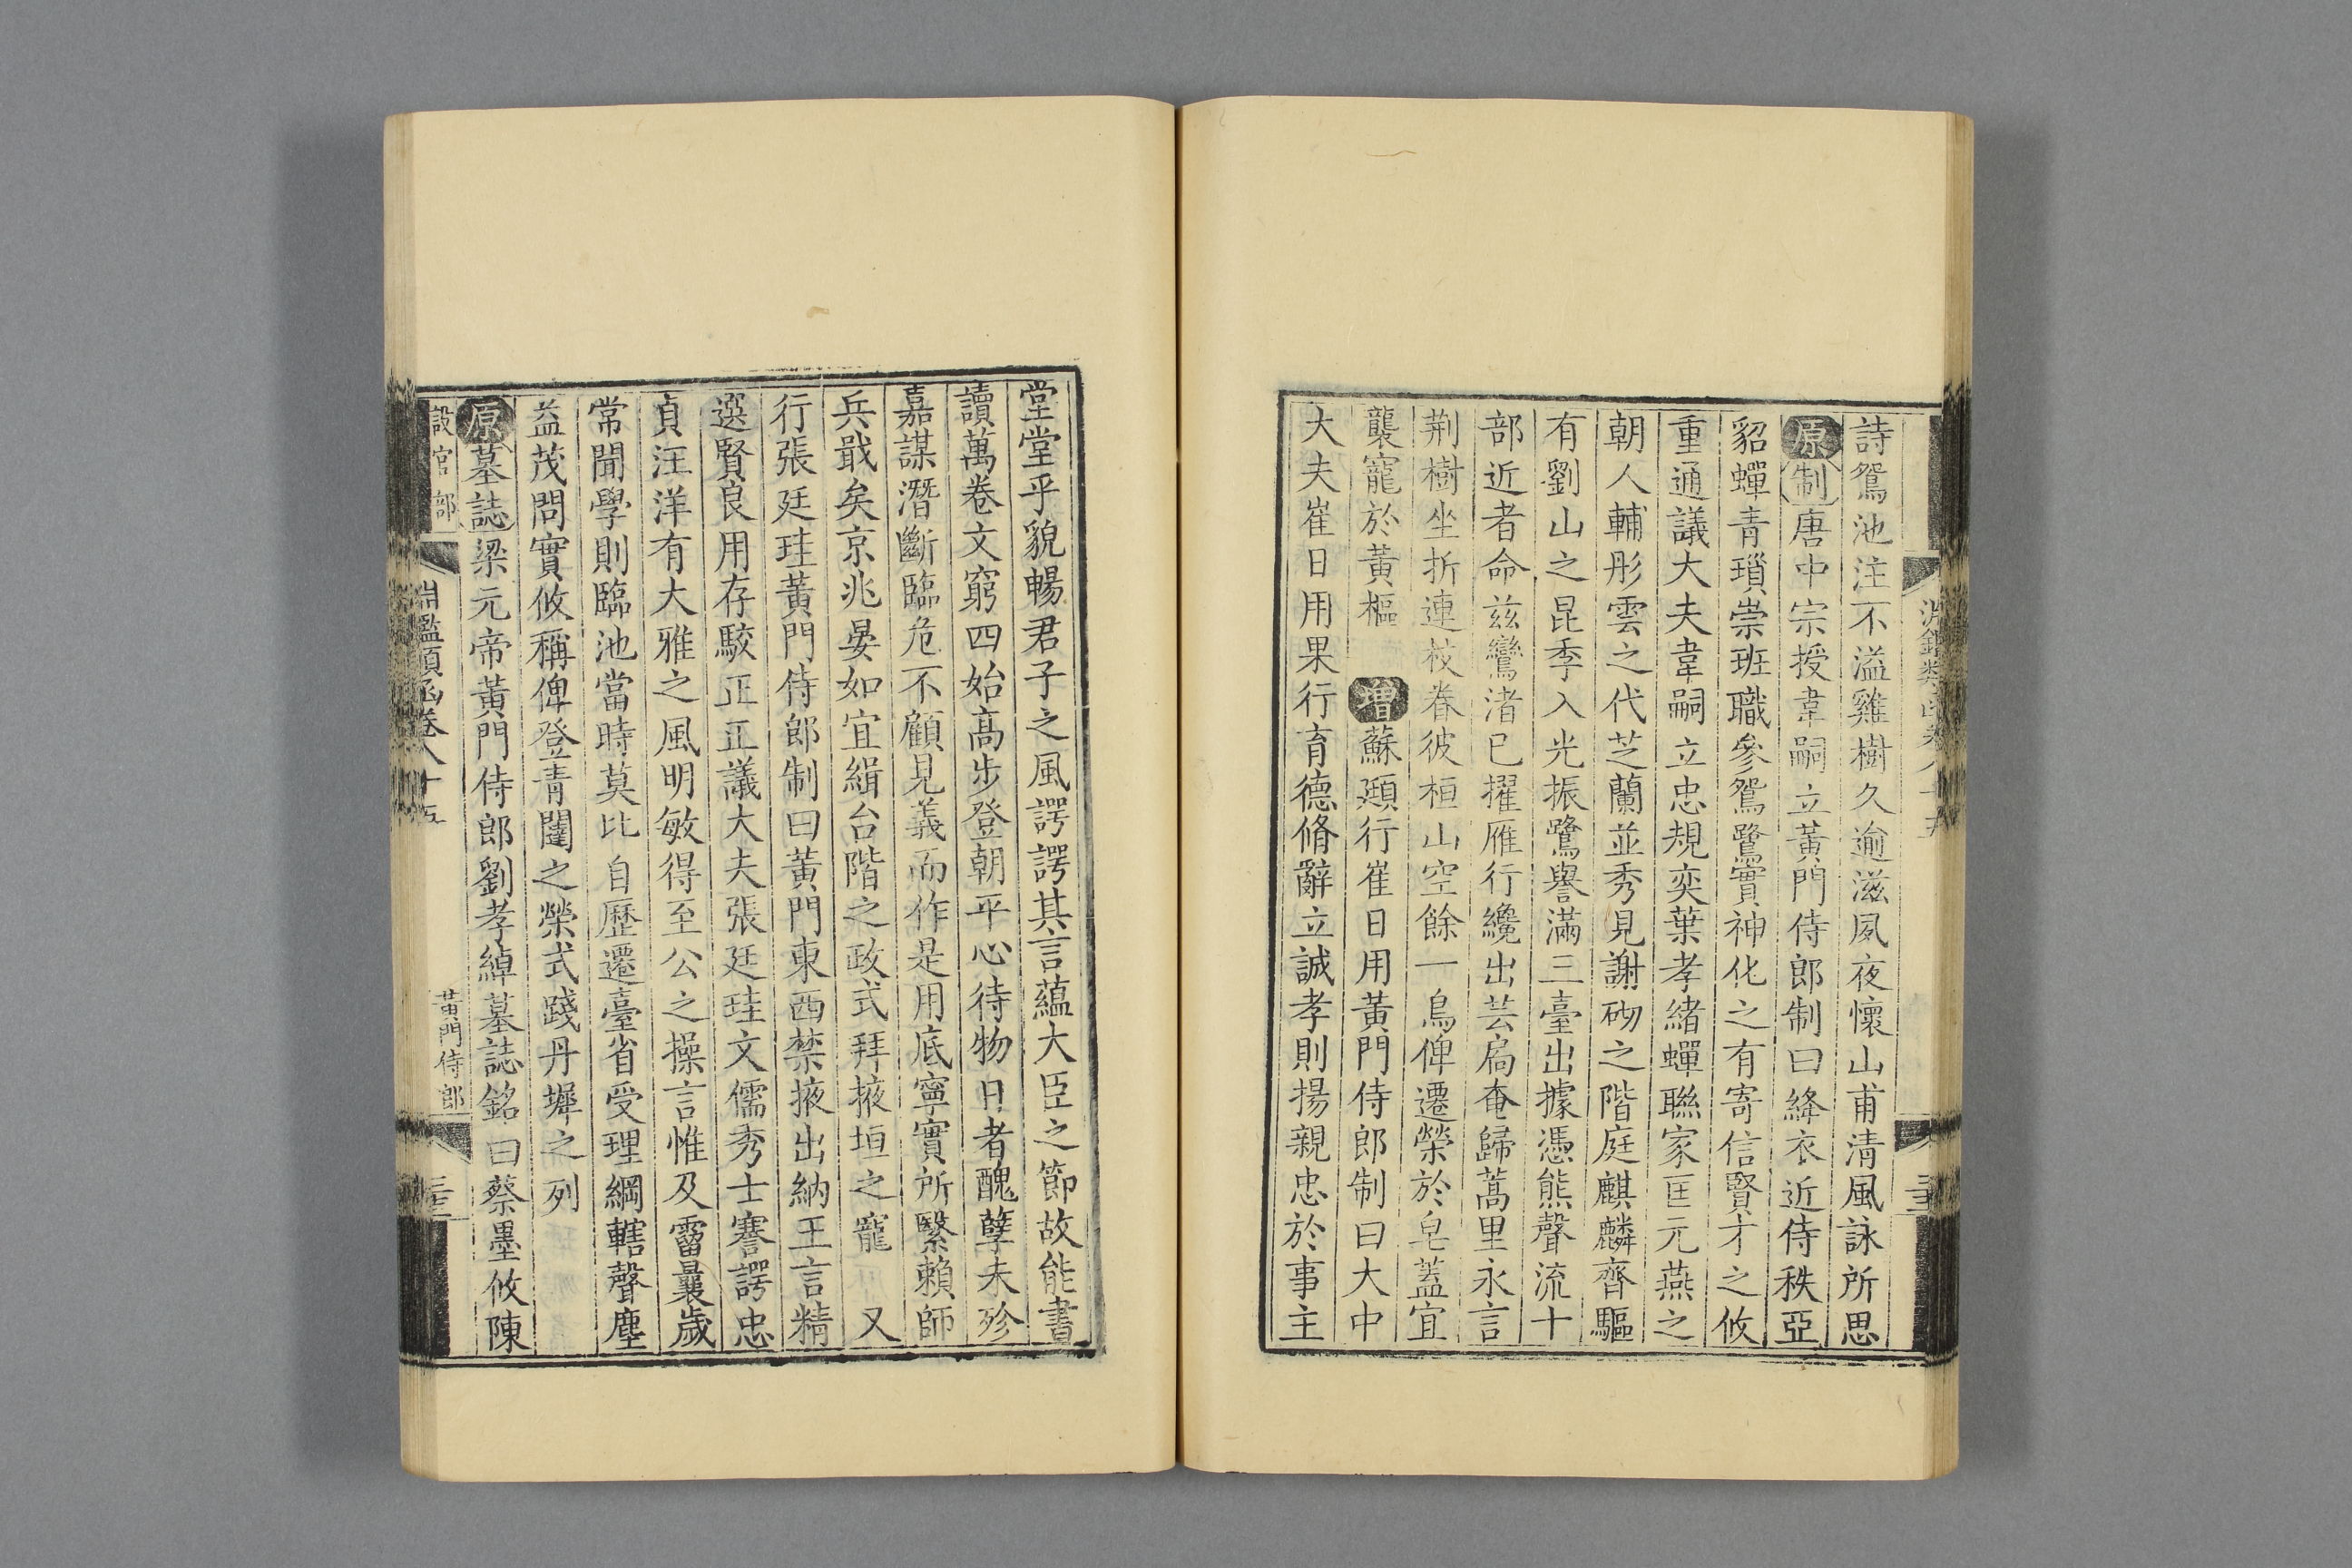 詩鴛池注不溢雞樹久逾滋夙夜懷山甫清風詠所思
原制唐中宗授韋嗣立黃門侍郎制曰絳衣近侍秩亞
貂蟬青瑣崇班職參鴛鷺實神化之有寄信賢才之攸
重通議大夫韋嗣立忠規奕葉孝緒蟬聯家匡元燕之
朝人輔彤雲之代芝蘭並秀見謝砌之階庭麒麟齊驅
有劉山之昆季入光振鷺譽滿三臺出據憑熊聲流十
部近者命兹鸞渚已擢雁行纔出芸扄奄歸蒿里永言
荆樹坐折連枝眷彼桓山空餘一鳥俾遷榮於皂蓋宜
襲寵於黃樞 增蘇頲行崔日用黃門侍郎制曰大中
大夫崔日用果行育德脩辭立誠孝則揚親忠於事主
堂堂乎貌暢君子之風諤諤其言蘊大臣之節故能書
讀萬卷文窮四始高步登朝平心待物日者醜孽未殄
嘉謀潛斷臨危不顧見義而作是用底寧實所繄賴師
兵戢矣京兆晏如宜緝台階之政式拜掖垣之寵 又
行張廷珪黃門侍郎制曰黃門東西禁掖出納王言精
選賢良用存駮正正議大夫張廷珪文儒秀士謇諤忠
貞汪洋有大雅之風明敏得至公之操言惟及霤曩歲
常聞學則臨池當時莫比自歷遷臺省受理綱轄聲塵
益茂問實攸稱俾登青闥之榮式踐丹墀之列
原墓誌梁元帝黃門侍郎劉孝綽墓誌銘曰蔡墨攸陳
設官部 淵鑑類函卷八十五 黃門侍郎